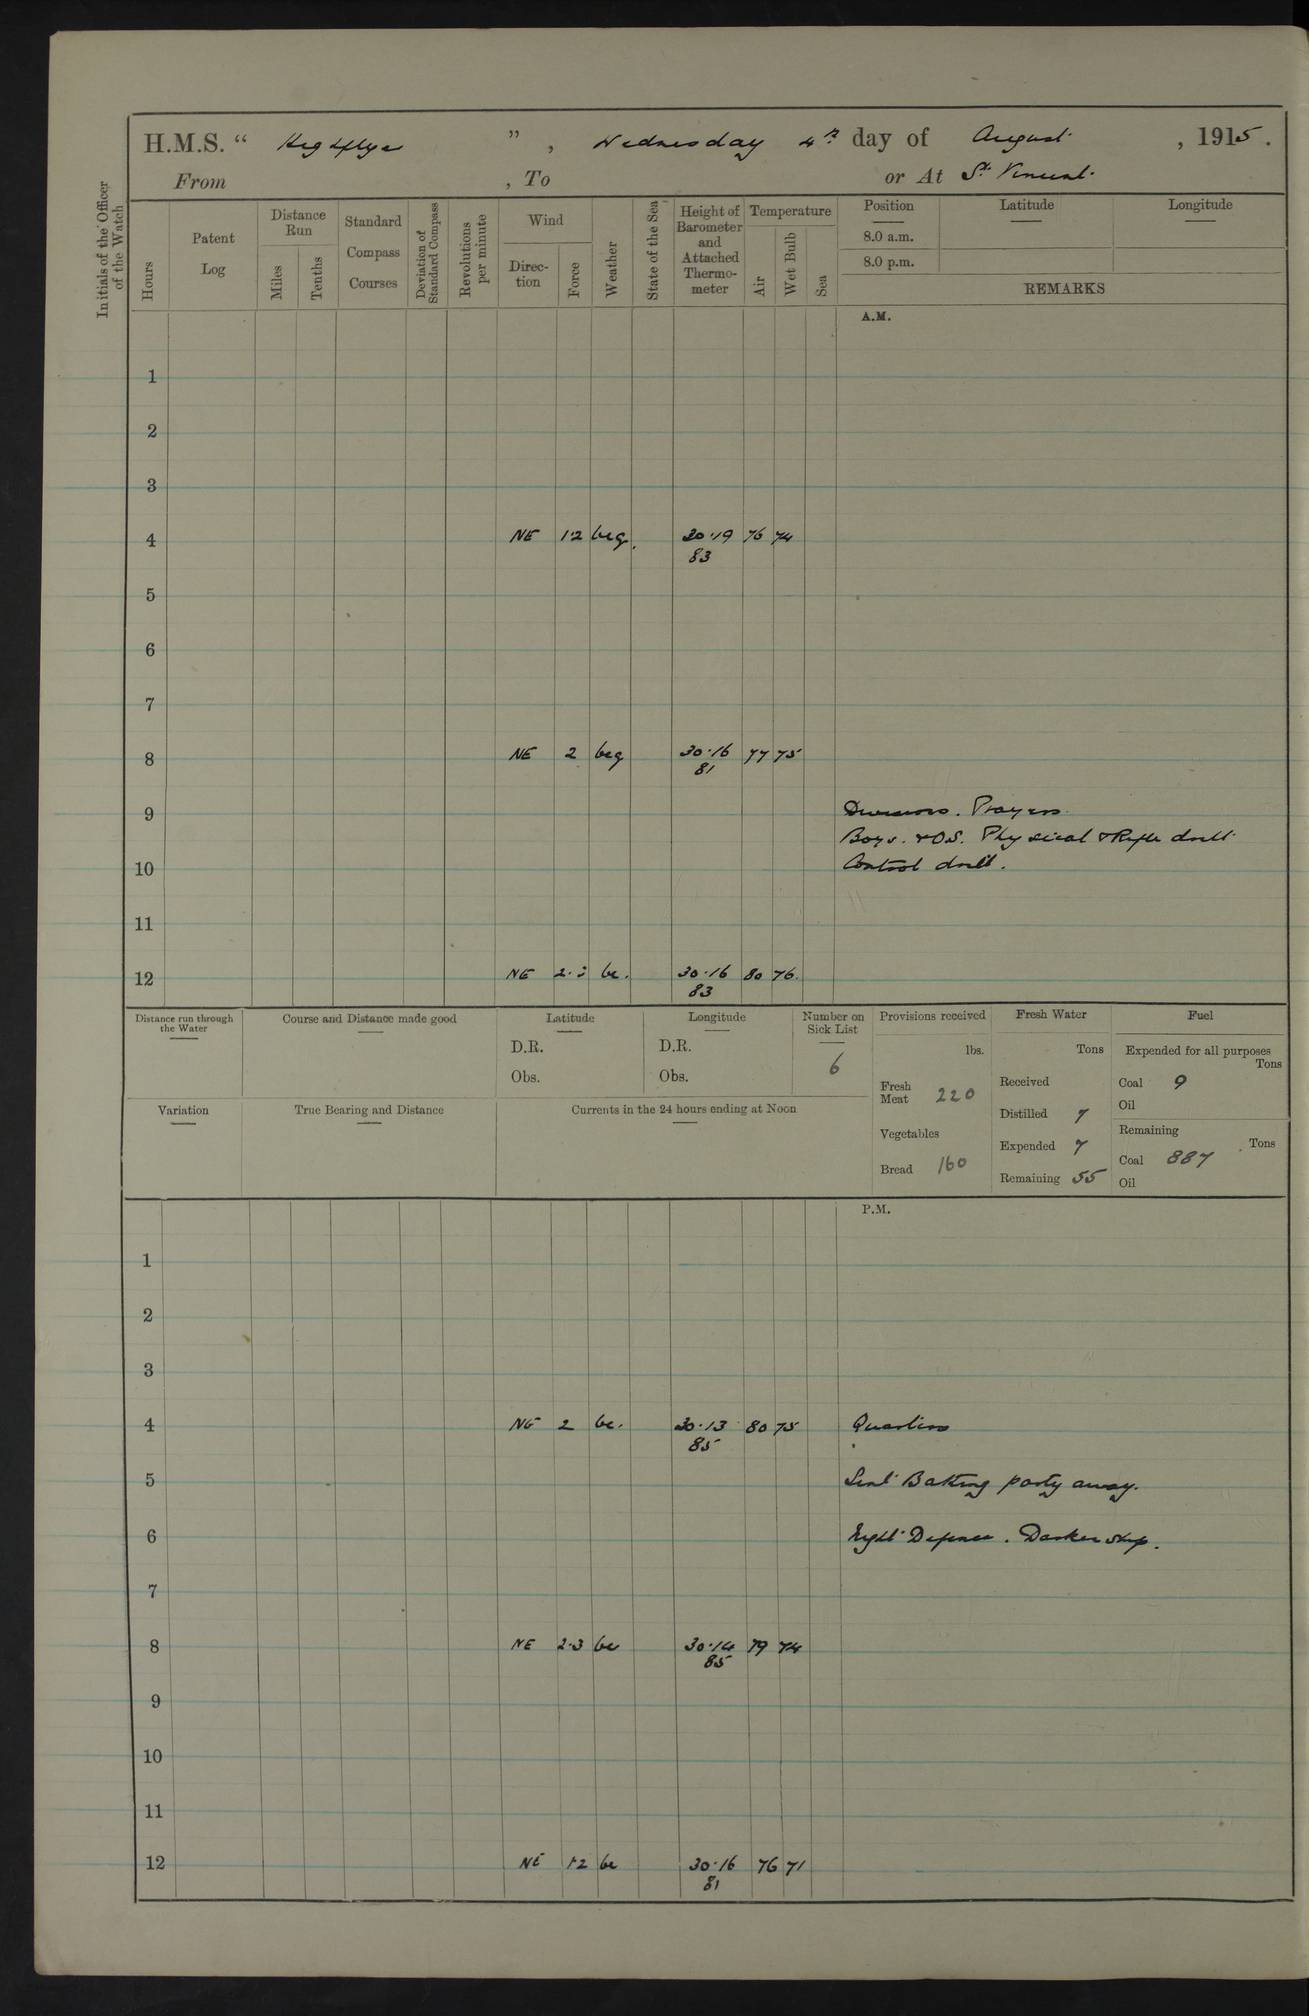 H.M.S. “ Highflyer ” , Wednesday 4th day of August , 1915 .
From , To or At St. Vincent.
Initials of the Officer of the Watch
Hours
Patent Log
Distance Run
Miles
Tenths
Standard Compass Courses
Deviation of Standard Compass
Revolutions per minute
Wind
Direction
Force
Weather
State of the Sea
Height of Barometer and Attached Thermometer
Temperature
Air
Wet Bulb
Sea
Position Latitude Longitude
8.0 a.m.
8.0 p.m.
REMARKS
A.M.
1
2
3
4 NE 1·2 bcq. 30·19 76 74
83
5
6
7
8 NE 2 bcq 30·16 77 75
81
9 Divisions. Prayers.
Boys. & O.S. Physical & Rifle drill.
10 Control drill.
11
12 NE 2·3 bc. 30·16 80 76.
83
Distance run through the Water
Course and Distance made good
Latitude
D.R.
Obs.
Longitude
D.R.
Obs.
Number on Sick List
6
Variation
True Bearing and Distance
Currents in the 24 hours ending at Noon
Provisions received
lbs.
Fresh Meat 220
Vegetables
Bread 160
Fresh Water
Tons
Received
Distilled 7
Expended 7
Remaining 55
Fuel
Expended for all purposes
Tons
Coal 9
Oil
Remaining
Tons
Coal 887
Oil
P.M.
1
2
3
4 NE 2 bc. 30·13 80 75 Quarters
85
5 Sent Bathing party away.
6 Night Defence. Darken ship.
7
8 NE 2·3 bc 30·14 79 74
85
9
10
11
12 NE 1·2 bc 30·16 76 71
81